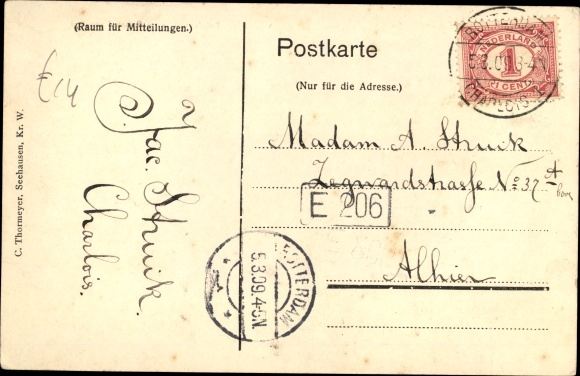 (Raum für Mitteilungen.)
Postkarte
(Nur für die Adresse.)
C. Thormeyer, Seehausen, Kr. W.
€14
Jac. Struik.
Charlois.
NEDERLAND
1
CENT
5.3.09 3-4
CHARLOIS
Madam A. Struik
Zegwardstrasse No 37
boven
E 206
Alhier
ROTTERDAM
5.3.09.4-5N.